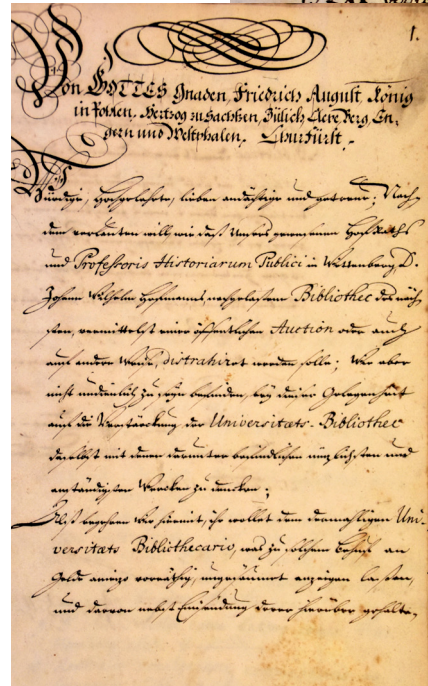 1.
Von GOTTES Gnaden, Friedrich August, König
in Pohlen, Hertzog zu Sachßen, Jülich, Cleve, Berg, En-
gern und Westphalen, Churfürst.
Würdige, Hochgelahrte, lieben andächtige und getreue; Nach-
dem verlauten will, wie daß Unsers gewesenen Hoff Raths
und Professoris Historiarum Publici in Wittenberg, D.
Johann Wilhelm Hoffmanns, nachgelaßene Bibliothec der näch-
sten, vermittelst einer öffentlichen Auction oder auch
auf andere Weise, distrahiret werden solle; Wir aber
nicht undienlich zu seyn befinden, bey dieser Gelegenheit
auf die Verstärckung der Universitæts-Bibliothec
daselbst mit denen darunter befindlichen nützlichsten und
anständigsten Wercken zu dencken;
Alß begehren Wir hiermit, ihr wollet dem dermahligen Uni-
versitæts Bibliothecario, was zu solchem Behuff an
Gelde annoch vorräthig, ungesäumt anzeigen laßen,
und davon nebst Einsendung derer hierüber gehalte-